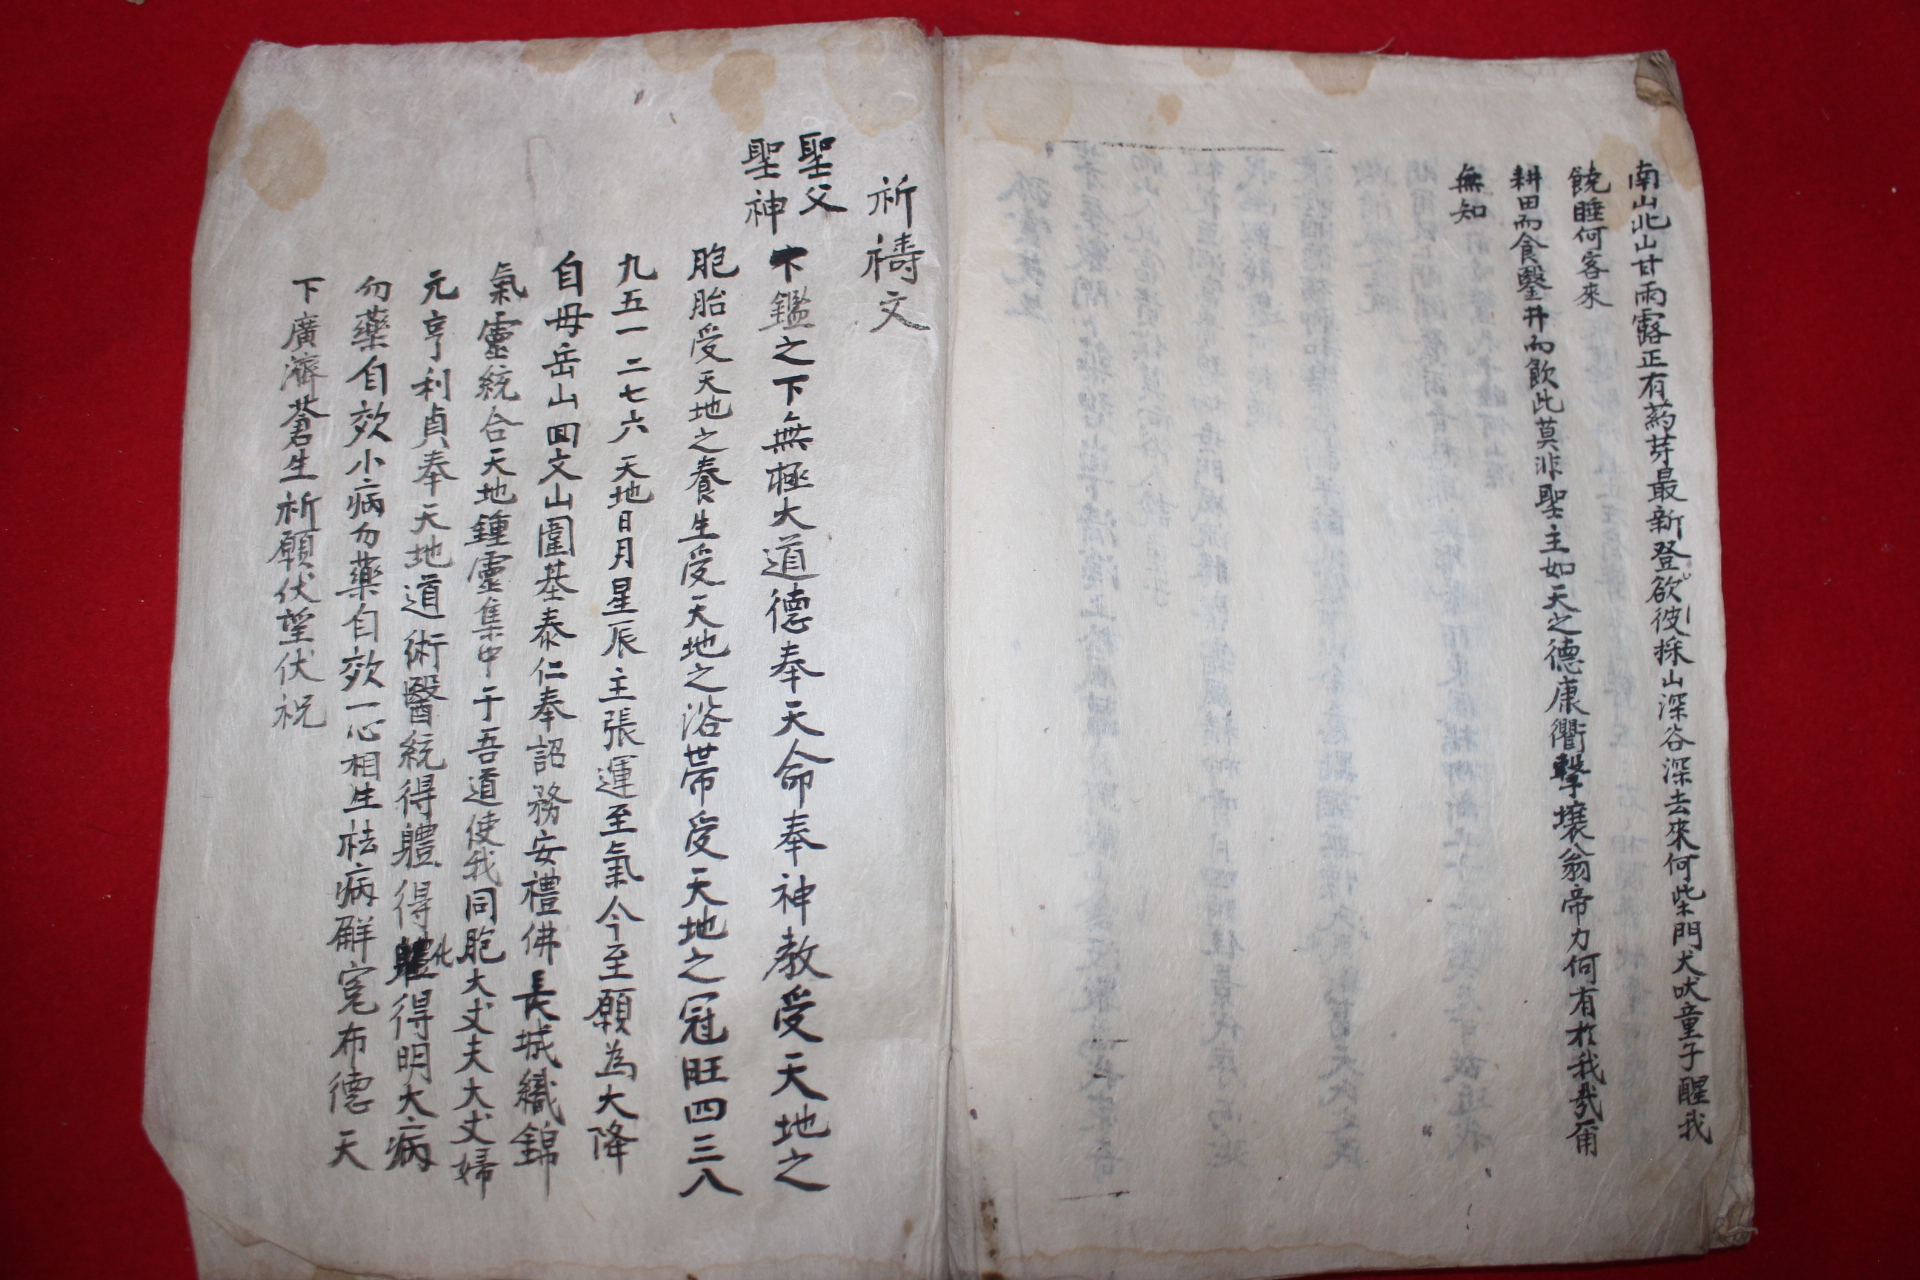 南山北山甘雨露正有药芽最新登欲彼採山深谷深去來何柴門犬吠童子醒我
饒睡何客來
耕田而食鑿井而飲此莫非聖主如天之德康衢擊壤翁帝力何有於我哉甭
無知
祈禱文
聖父
聖神
下鑑之下無極大道德奉天命奉神教受天地之
胞胎受天地之養生受天地之浴帶受天地之冠旺四三八
九五一二七六天地日月星辰主張運至氣今至願為大降
自母岳山回文山圍基泰仁奉詔務安禮佛長城織錦
氣靈統合天地鍾靈集中于吾道使我同胞大丈夫大丈婦
元亨利貞奉天地道術醫統得體得化得明大病
勿藥自效小病勿藥自效一心相生祛病解冤布德天
下廣濟蒼生祈願伏望伏祝